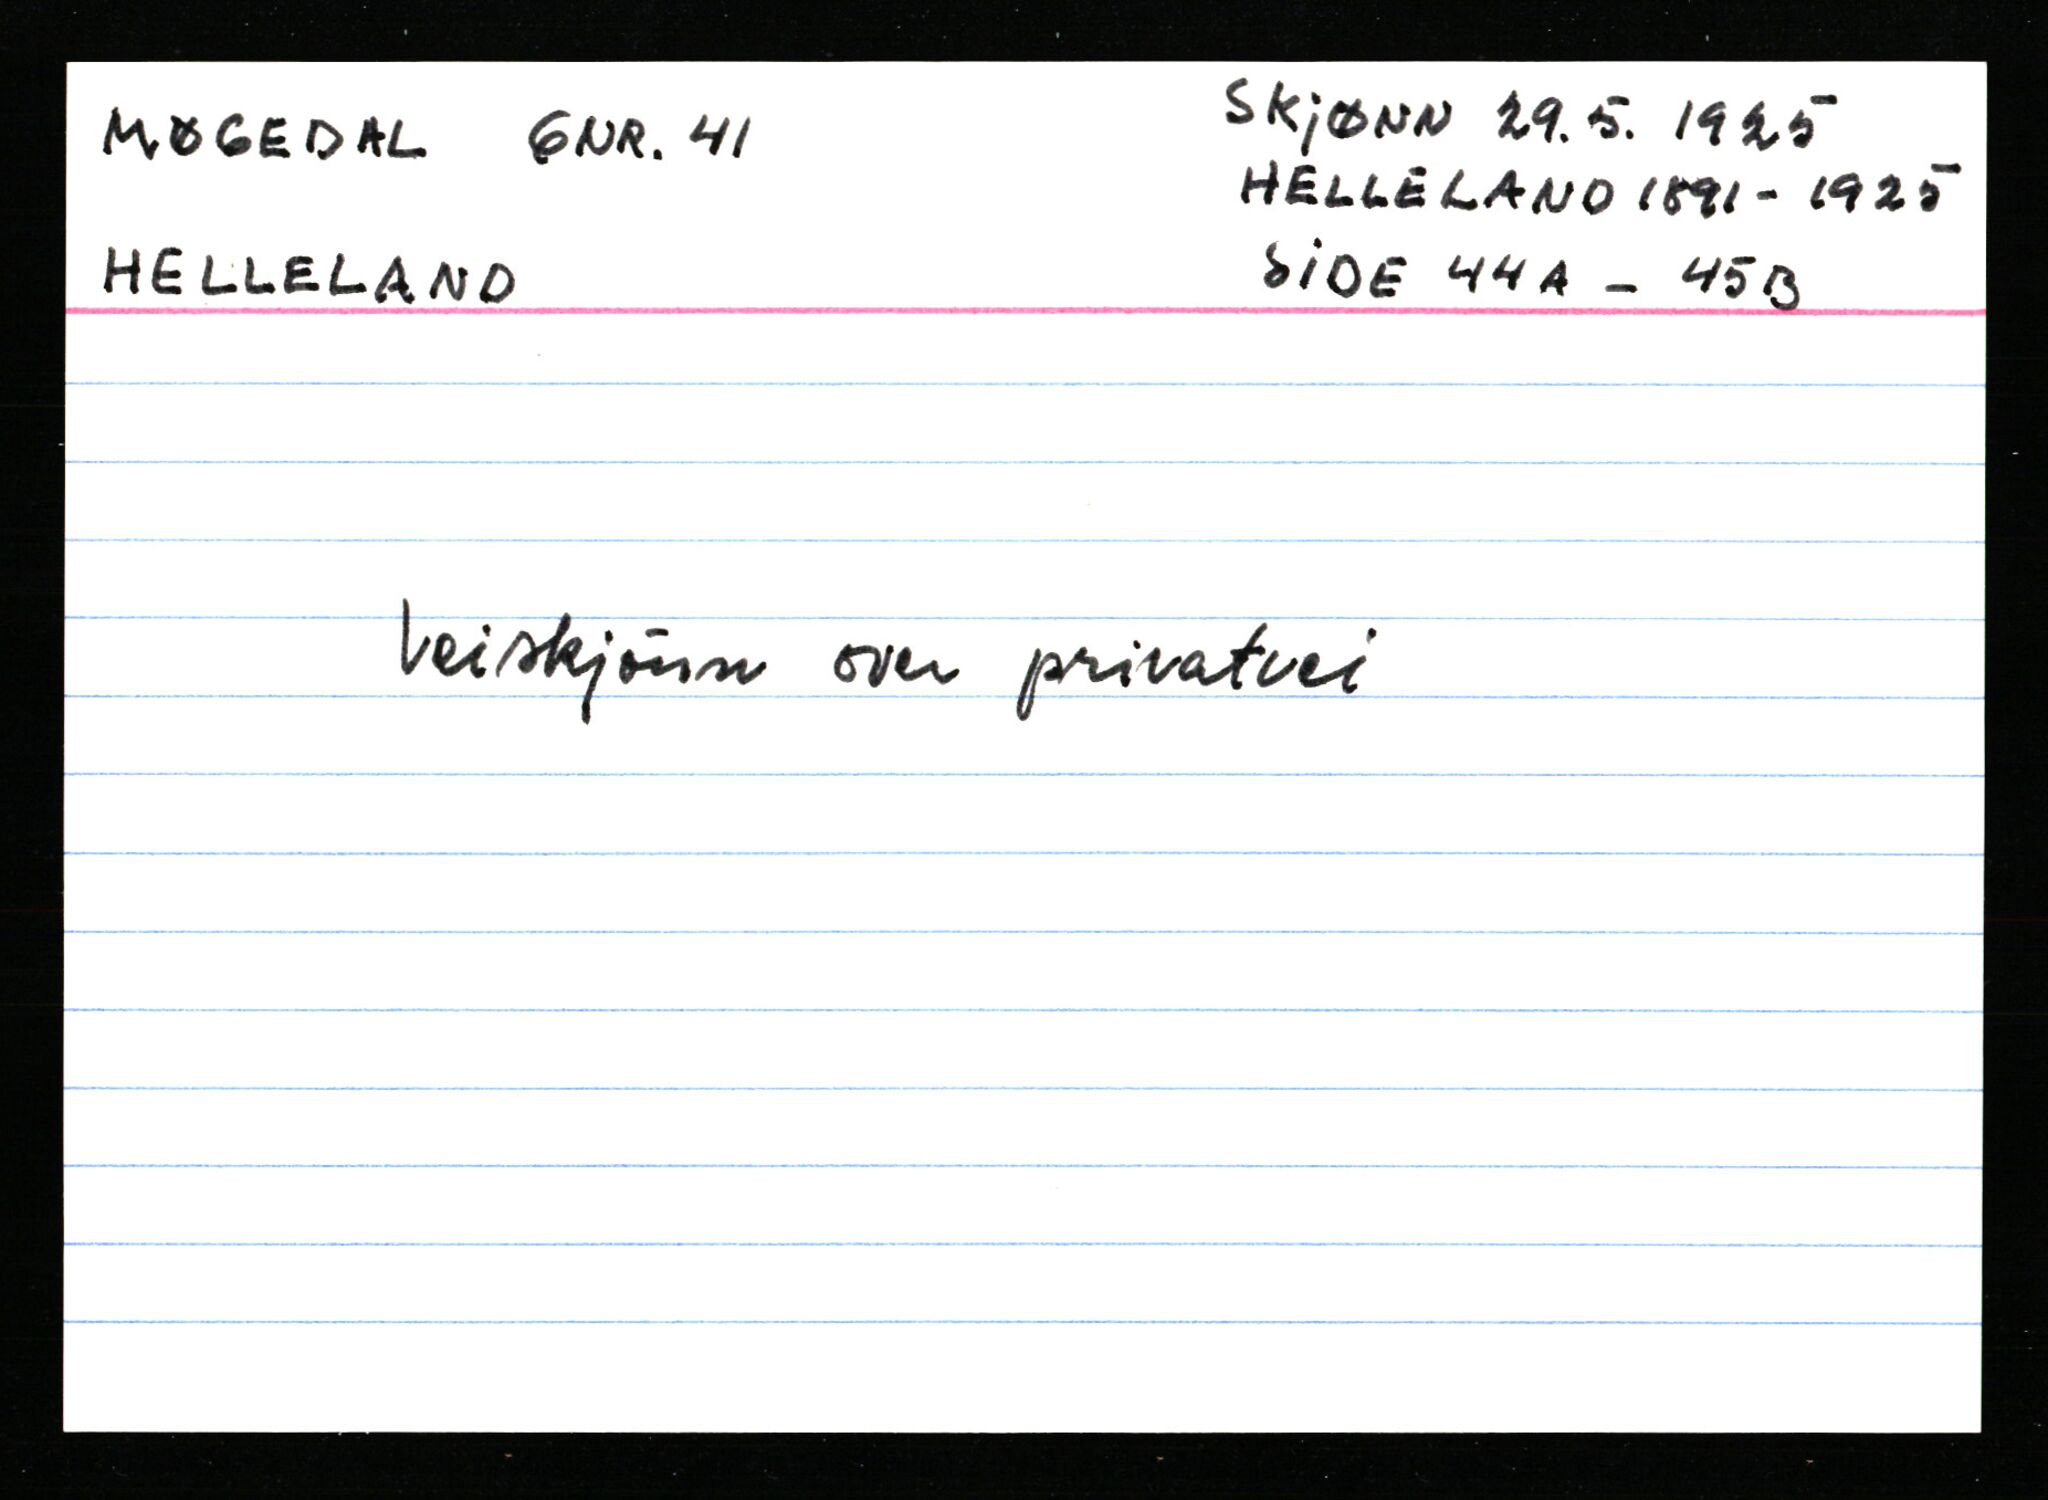 MØGEDAL GNR. 41
HELLELAND
SKjØNN 29.5. 1925
HELLELAND 1891 - 1925
SiDE 44A - 45B
Veiskjönn over privatvei